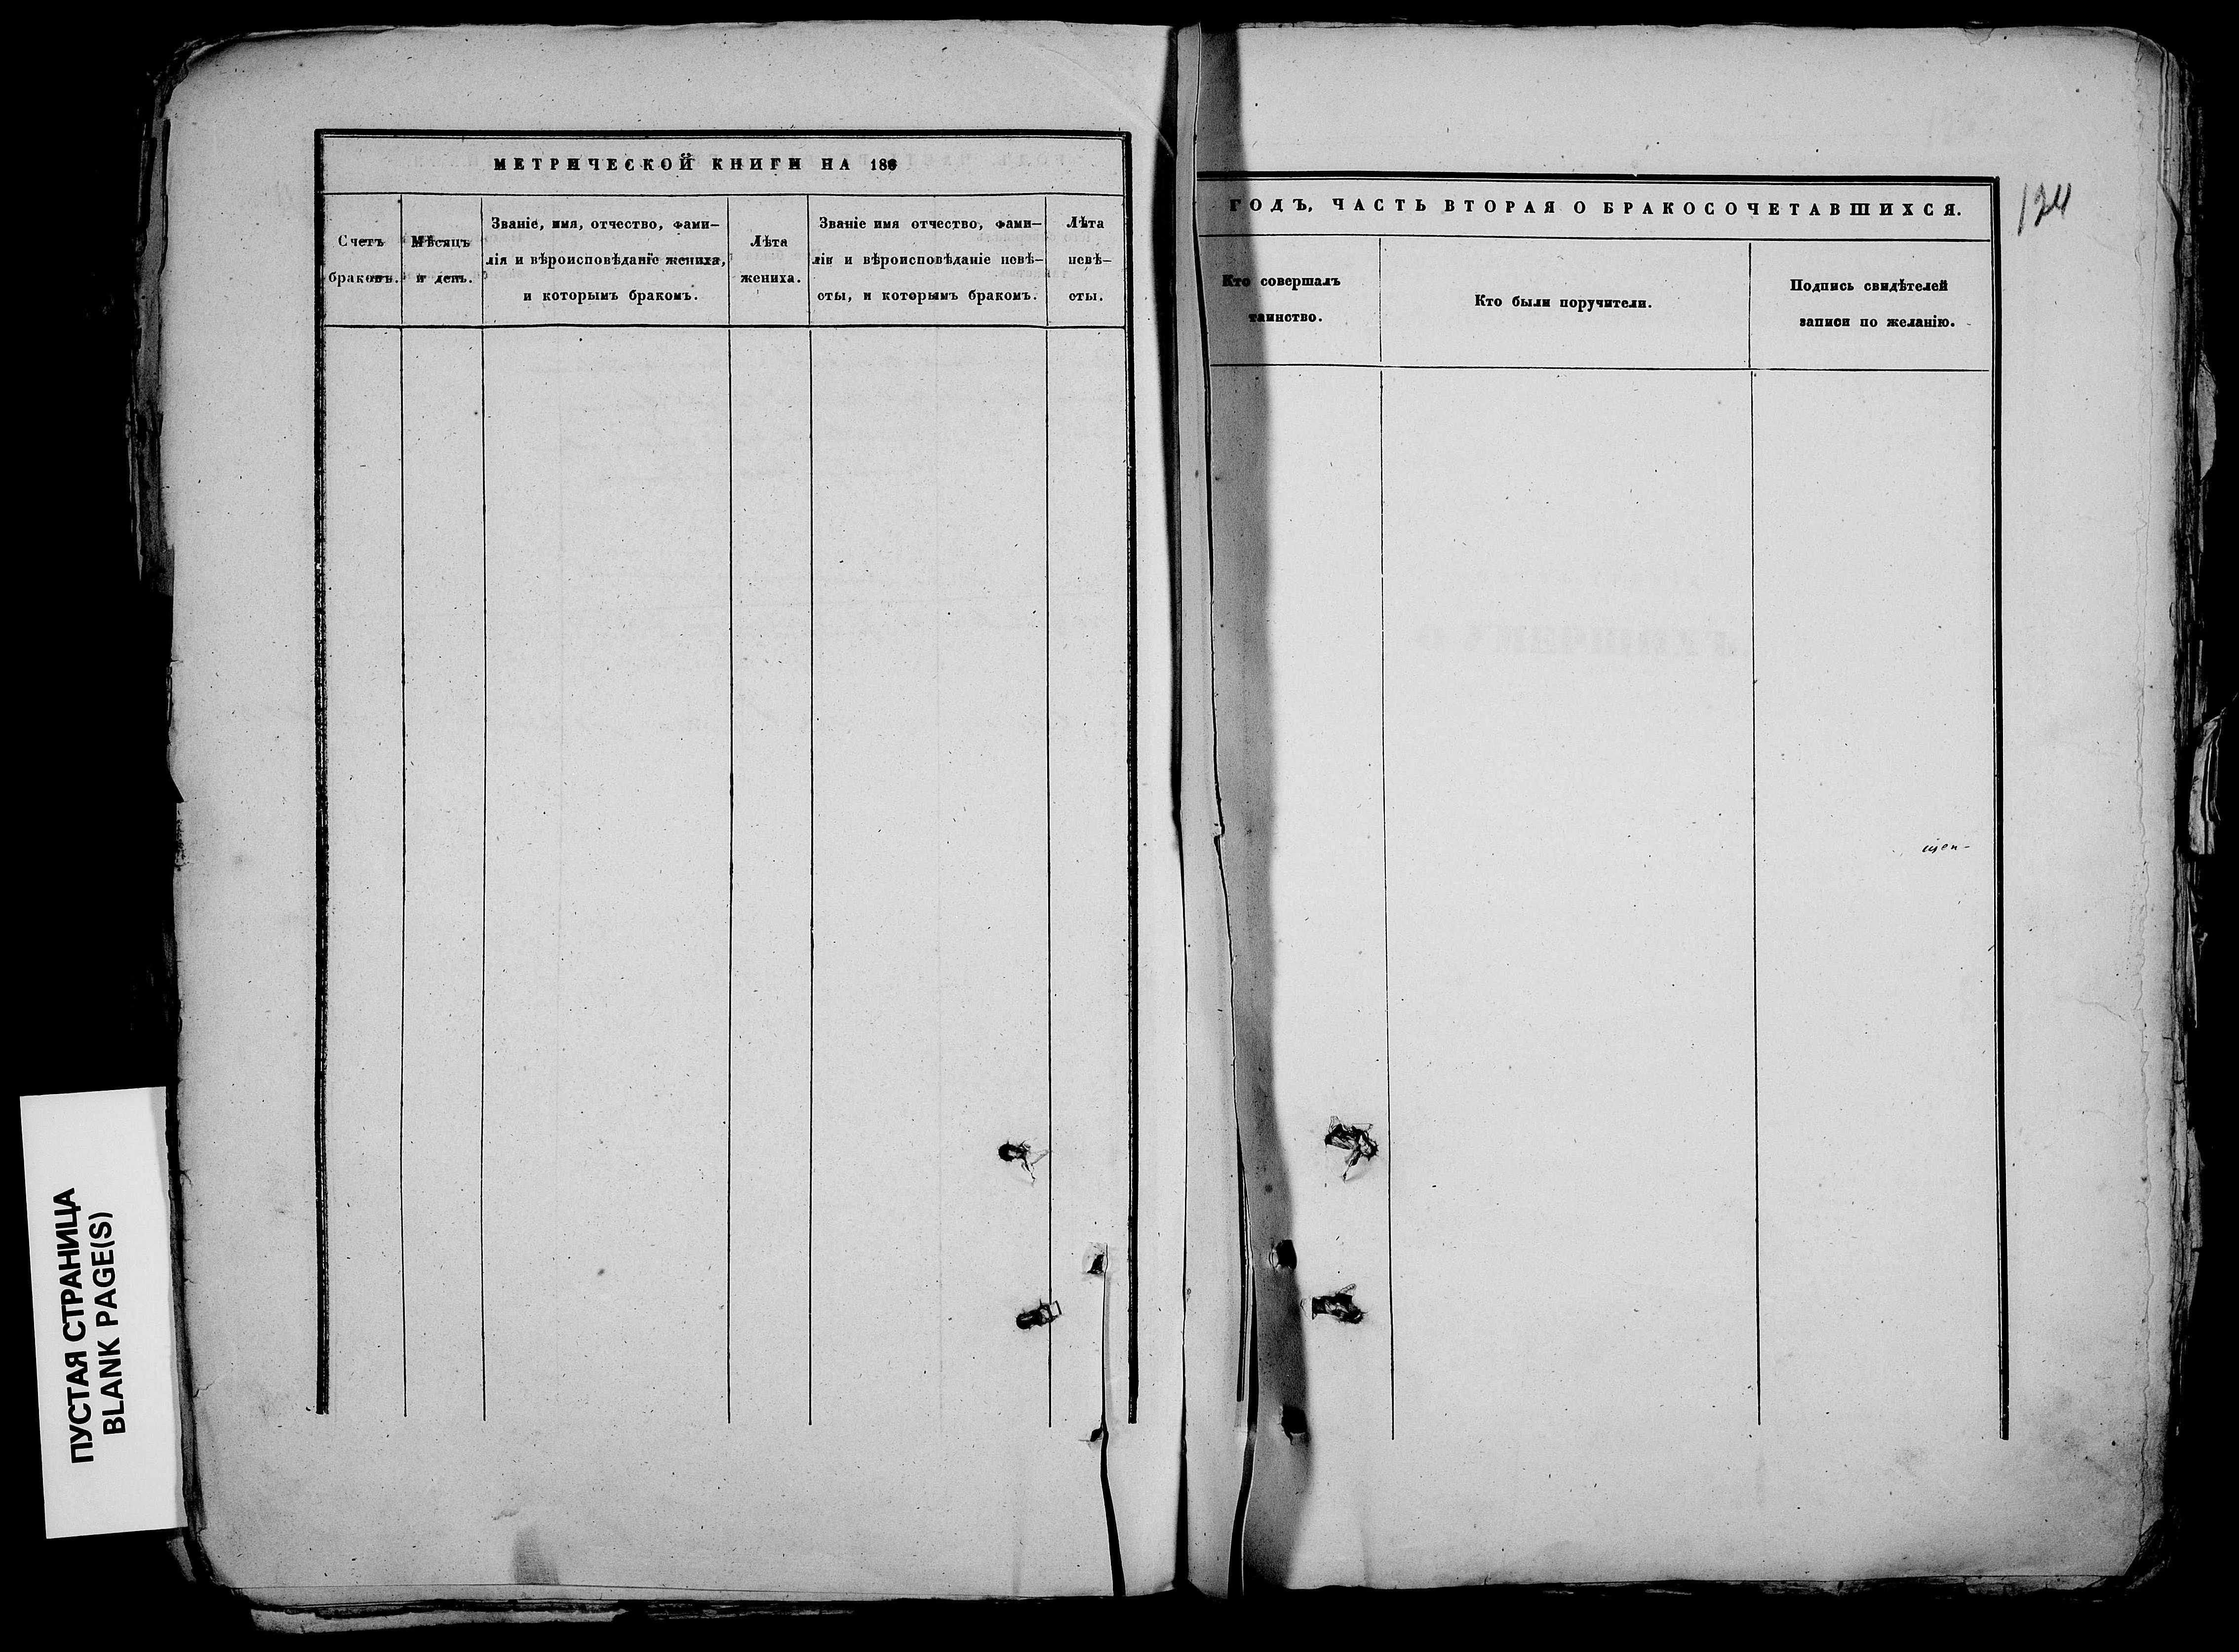 МЕТРИЧЕСКОЙ КНИГИ НА 188
Счетъ
браковъ.
Мѣсяцъ
и день.
Званіе, имя, отчество, фами-
лія и вѣроисповѣданіе жениха,
и которымъ бракомъ.
Лѣта
жениха.
Званіе имя отчество, фами-
лія и вѣроисповѣданіе невѣ-
сты, и которымъ бракомъ.
Лѣта
невѣ-
сты.
ГОДЪ, ЧАСТЬ ВТОРАЯ О БРАКОСОЧЕТАВШИХСЯ.
124
Кто совершалъ
таинство.
Кто были поручители.
Подпись свидѣтелей
записи по желанію.
О УМЕРШИХЪ
ПУСТАЯ СТРАНИЦА
BLANK PAGE(S)